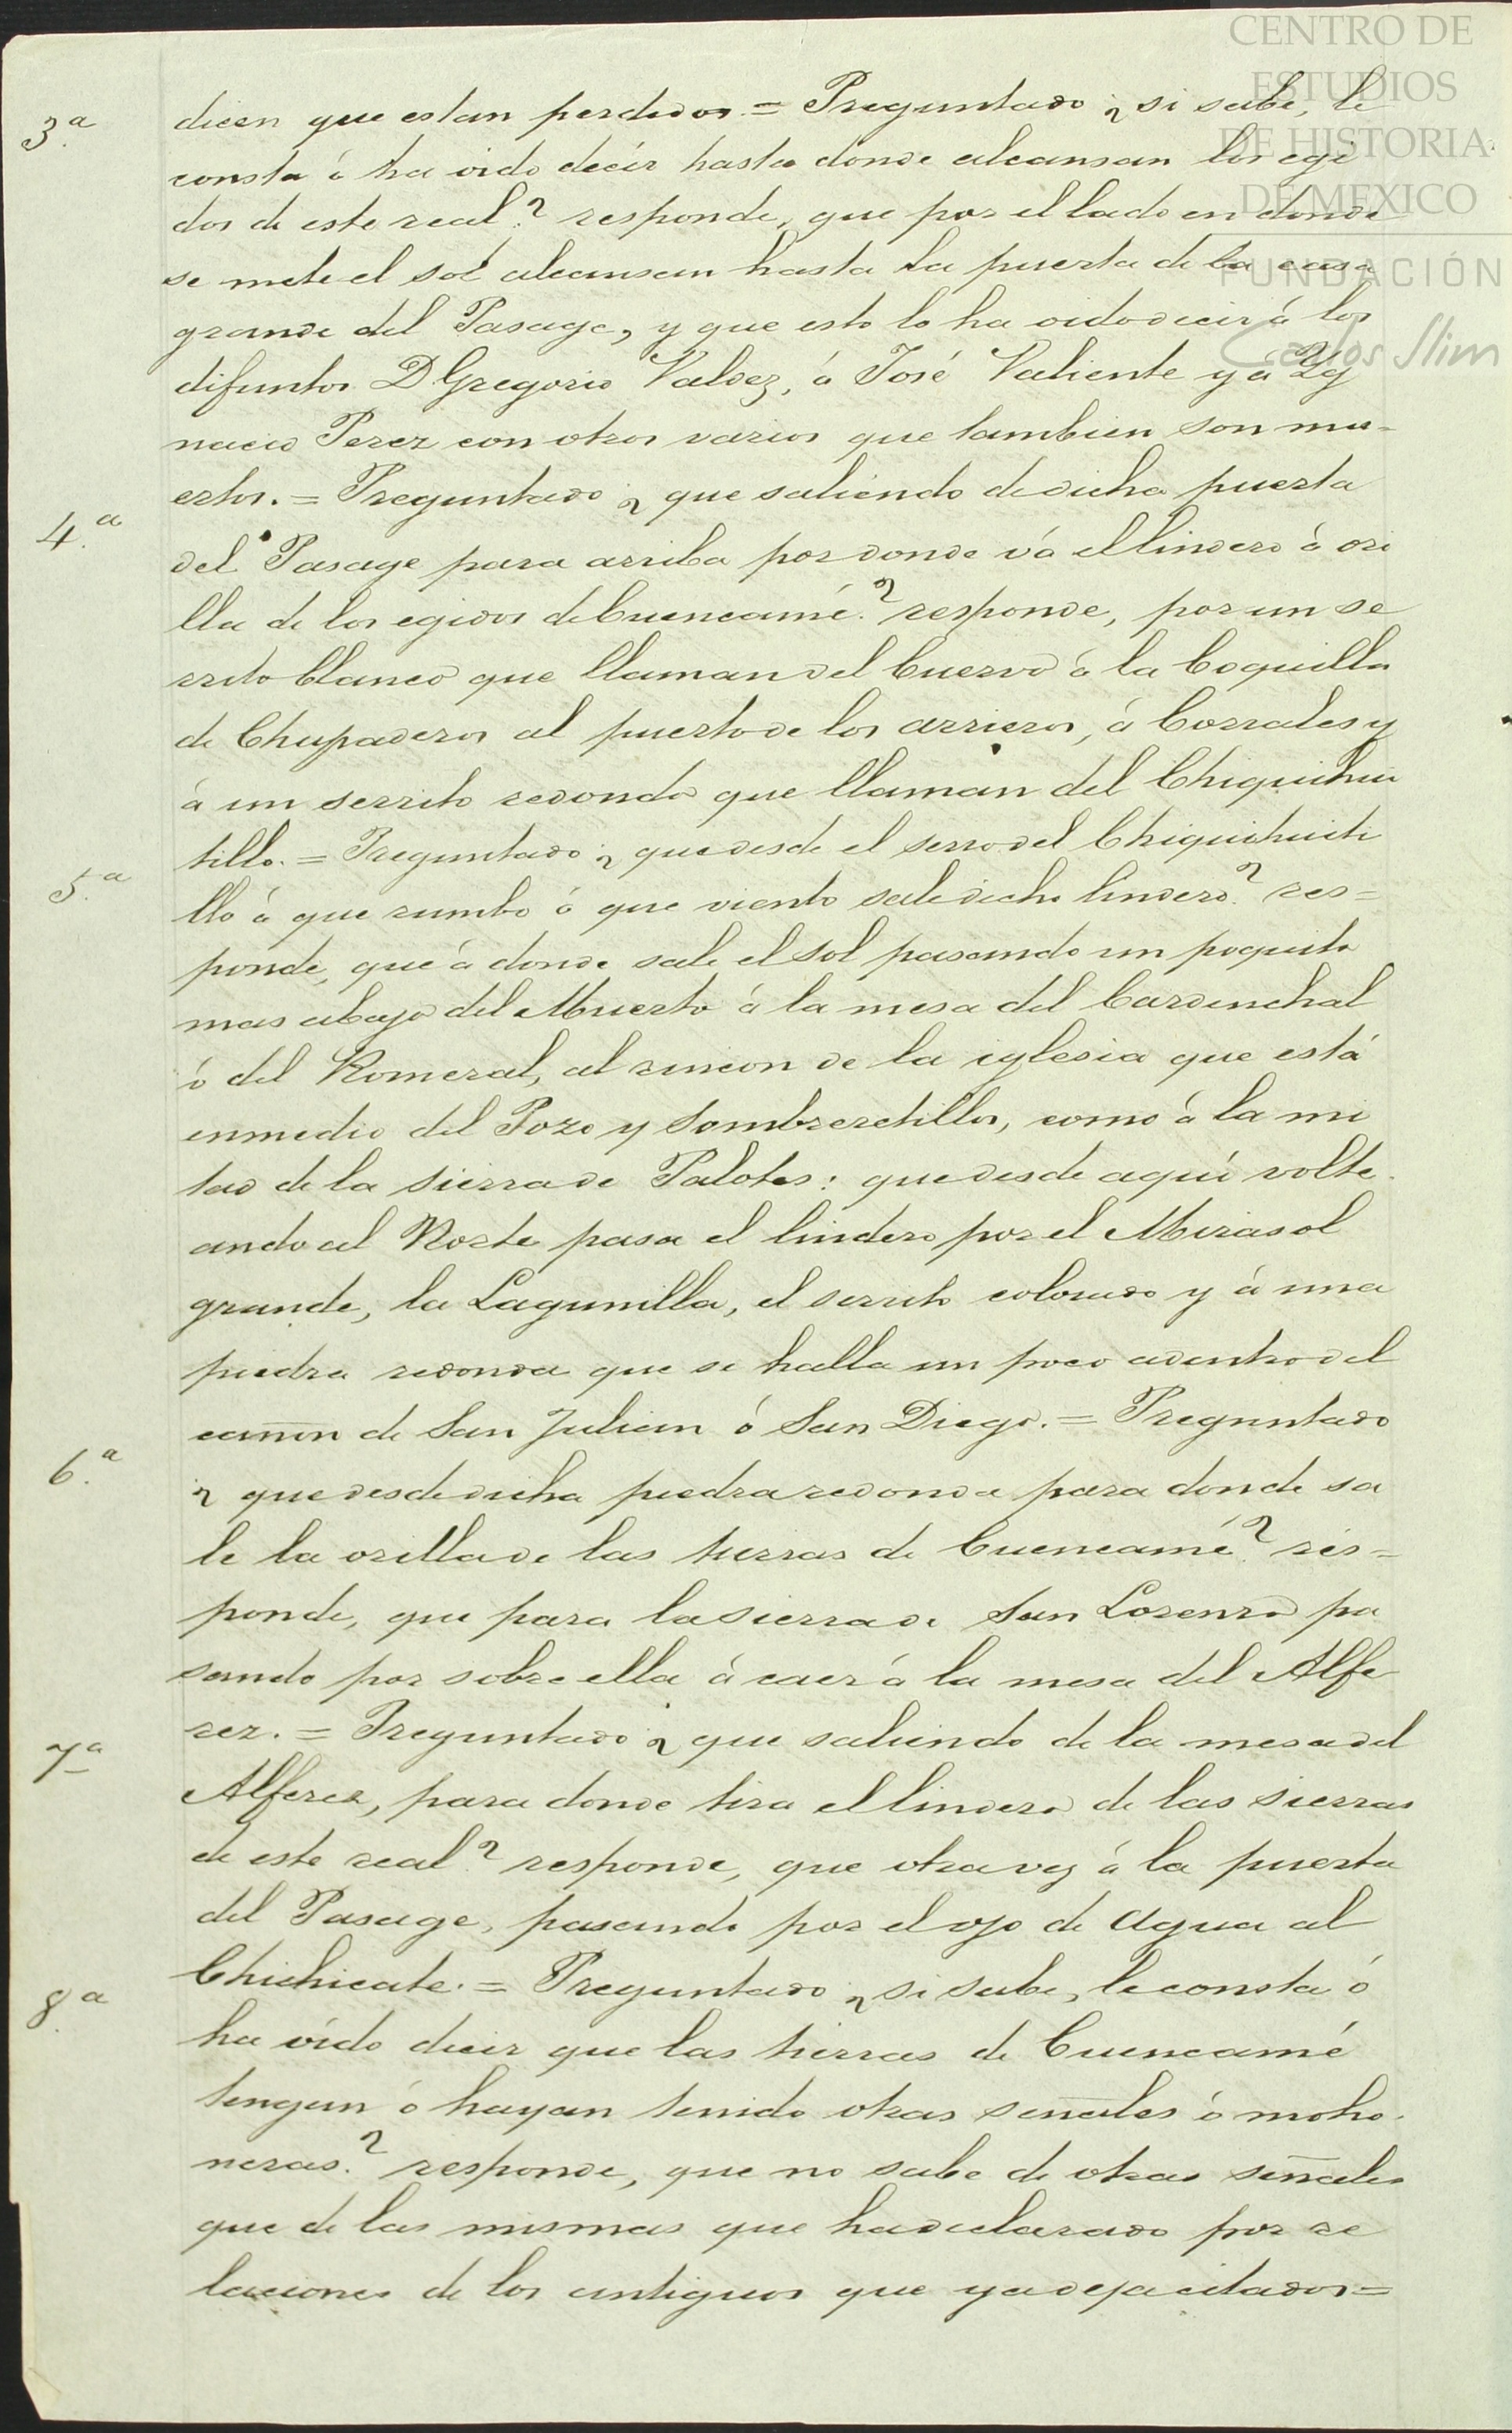 CENTRO DE
ESTUDIOS
DE HISTORIA
DE MEXICO
FUNDACIÓN
Carlos Slim
3.ª dicen que estan perdidos. = Preguntado ¿ si sabe, le
consta ó ha oido decir hasta donde alcansan los egi
dos de este real? responde, que por el lado en donde
se mete el sol alcansan hasta la puerta de la casa
grande del Pasage, y que esto lo ha oido decir á los
difuntos D Gregorio Valdez, á José Valiente y á Yg
nacio Perez con otros varios que tambien son mu-
4.ª ertos. = Preguntado ¿ que saliendo de dicha puerta
del Pasage para arriba por donde vá el lindero á ori
lla de los egidos de Cuencamé? responde, por un se
rrito blanco que llaman del Cuervo á la Boquilla
de Chupaderos al puerto de los arrieros, á Corrales y
á un serrito redondo que llaman del Chiquihui
5.ª tillo. = Preguntado ¿ que desde el serro del Chiquihuiti
llo á que rumbo ó que viento sale dicho lindero? res=
ponde, que á donde sale el sol pasando un poquito
mas abajo del Muerto á la mesa del Cardenchal
ó del Romeral, al rincon de la iglesia que está
enmedio del Pozo y Sombreretillos, como á la mi
tad de la sierra de Palotes: que desde aquí volte
ando al Norte pasa el lindero por el Mirasol
grande, la Lagunilla, el serrito colorado y á una
piedra redonda que se halla un poco adentro del
cañon de San Julian ó San Diego. = Preguntado
6.ª ¿ que desde dicha piedra redonda para donde sa
le la orilla de las tierras de Cuencamé? res=
ponde, que para la sierra de San Lorenzo pa
sando por sobre ella á caer á la mesa del Alfe
7ª rez. = Preguntado ¿ que saliendo de la mesa del
Alferez, para donde tira el lindero de las sierras
de este real? responde, que otra vez á la puerta
del Pasage, pasando por el ojo de agua al
8.ª Chichicate. = Preguntado ¿ si sabe, le consta ó
ha oído decir que las tierras de Cuencamé
tengan ó hayan tenido otras señales ó moho-
neras? responde, que no sabe de otras señales
que de las mismas que ha declarado por re
laciones de los antiguos que ya deja citados=